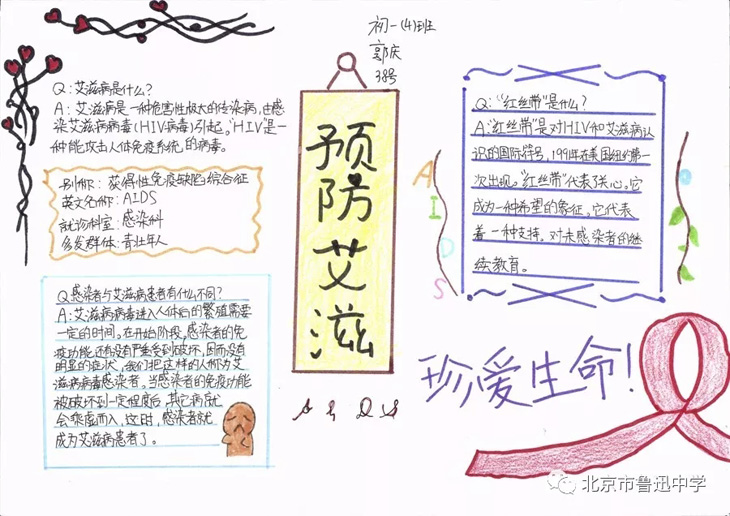 初一(4)班
郭庆
38号
Q:艾滋病是什么?
A:艾滋病是一种危害性极大的传染病,由感
染艾滋病病毒(HIV病毒)引起。"HIV"是一
种能攻击人体免疫系统的病毒。
别称:获得性免疫缺陷综合征
英文名称:AIDS
就诊科室:感染科
多发群体:青壮年人
Q感染者与艾滋病患者有什么不同?
A:艾滋病病毒进入人体后的繁殖需要
一定的时间。在开始阶段,感染者的免
疫功能还没有严重受到破坏,因而没有
明显的症状,我们把这样的人称为艾
滋病病毒感染者。当感染者的免疫功能
被破坏到一定程度后,其它病就
会乘虚而入,这时,感染者就
成为艾滋病患者了。
预防艾滋
AIDS
Q:"红丝带"是什么?
A:"红丝带"是对HIV和艾滋病认
识的国际符号,1991年在美国纽约第一
次出现。"红丝带"代表了关心。它
成为一种希望的象征。它代表
着一种支持。对未感染者的继
续教育。
AIDS
珍爱生命!
北京市鲁迅中学